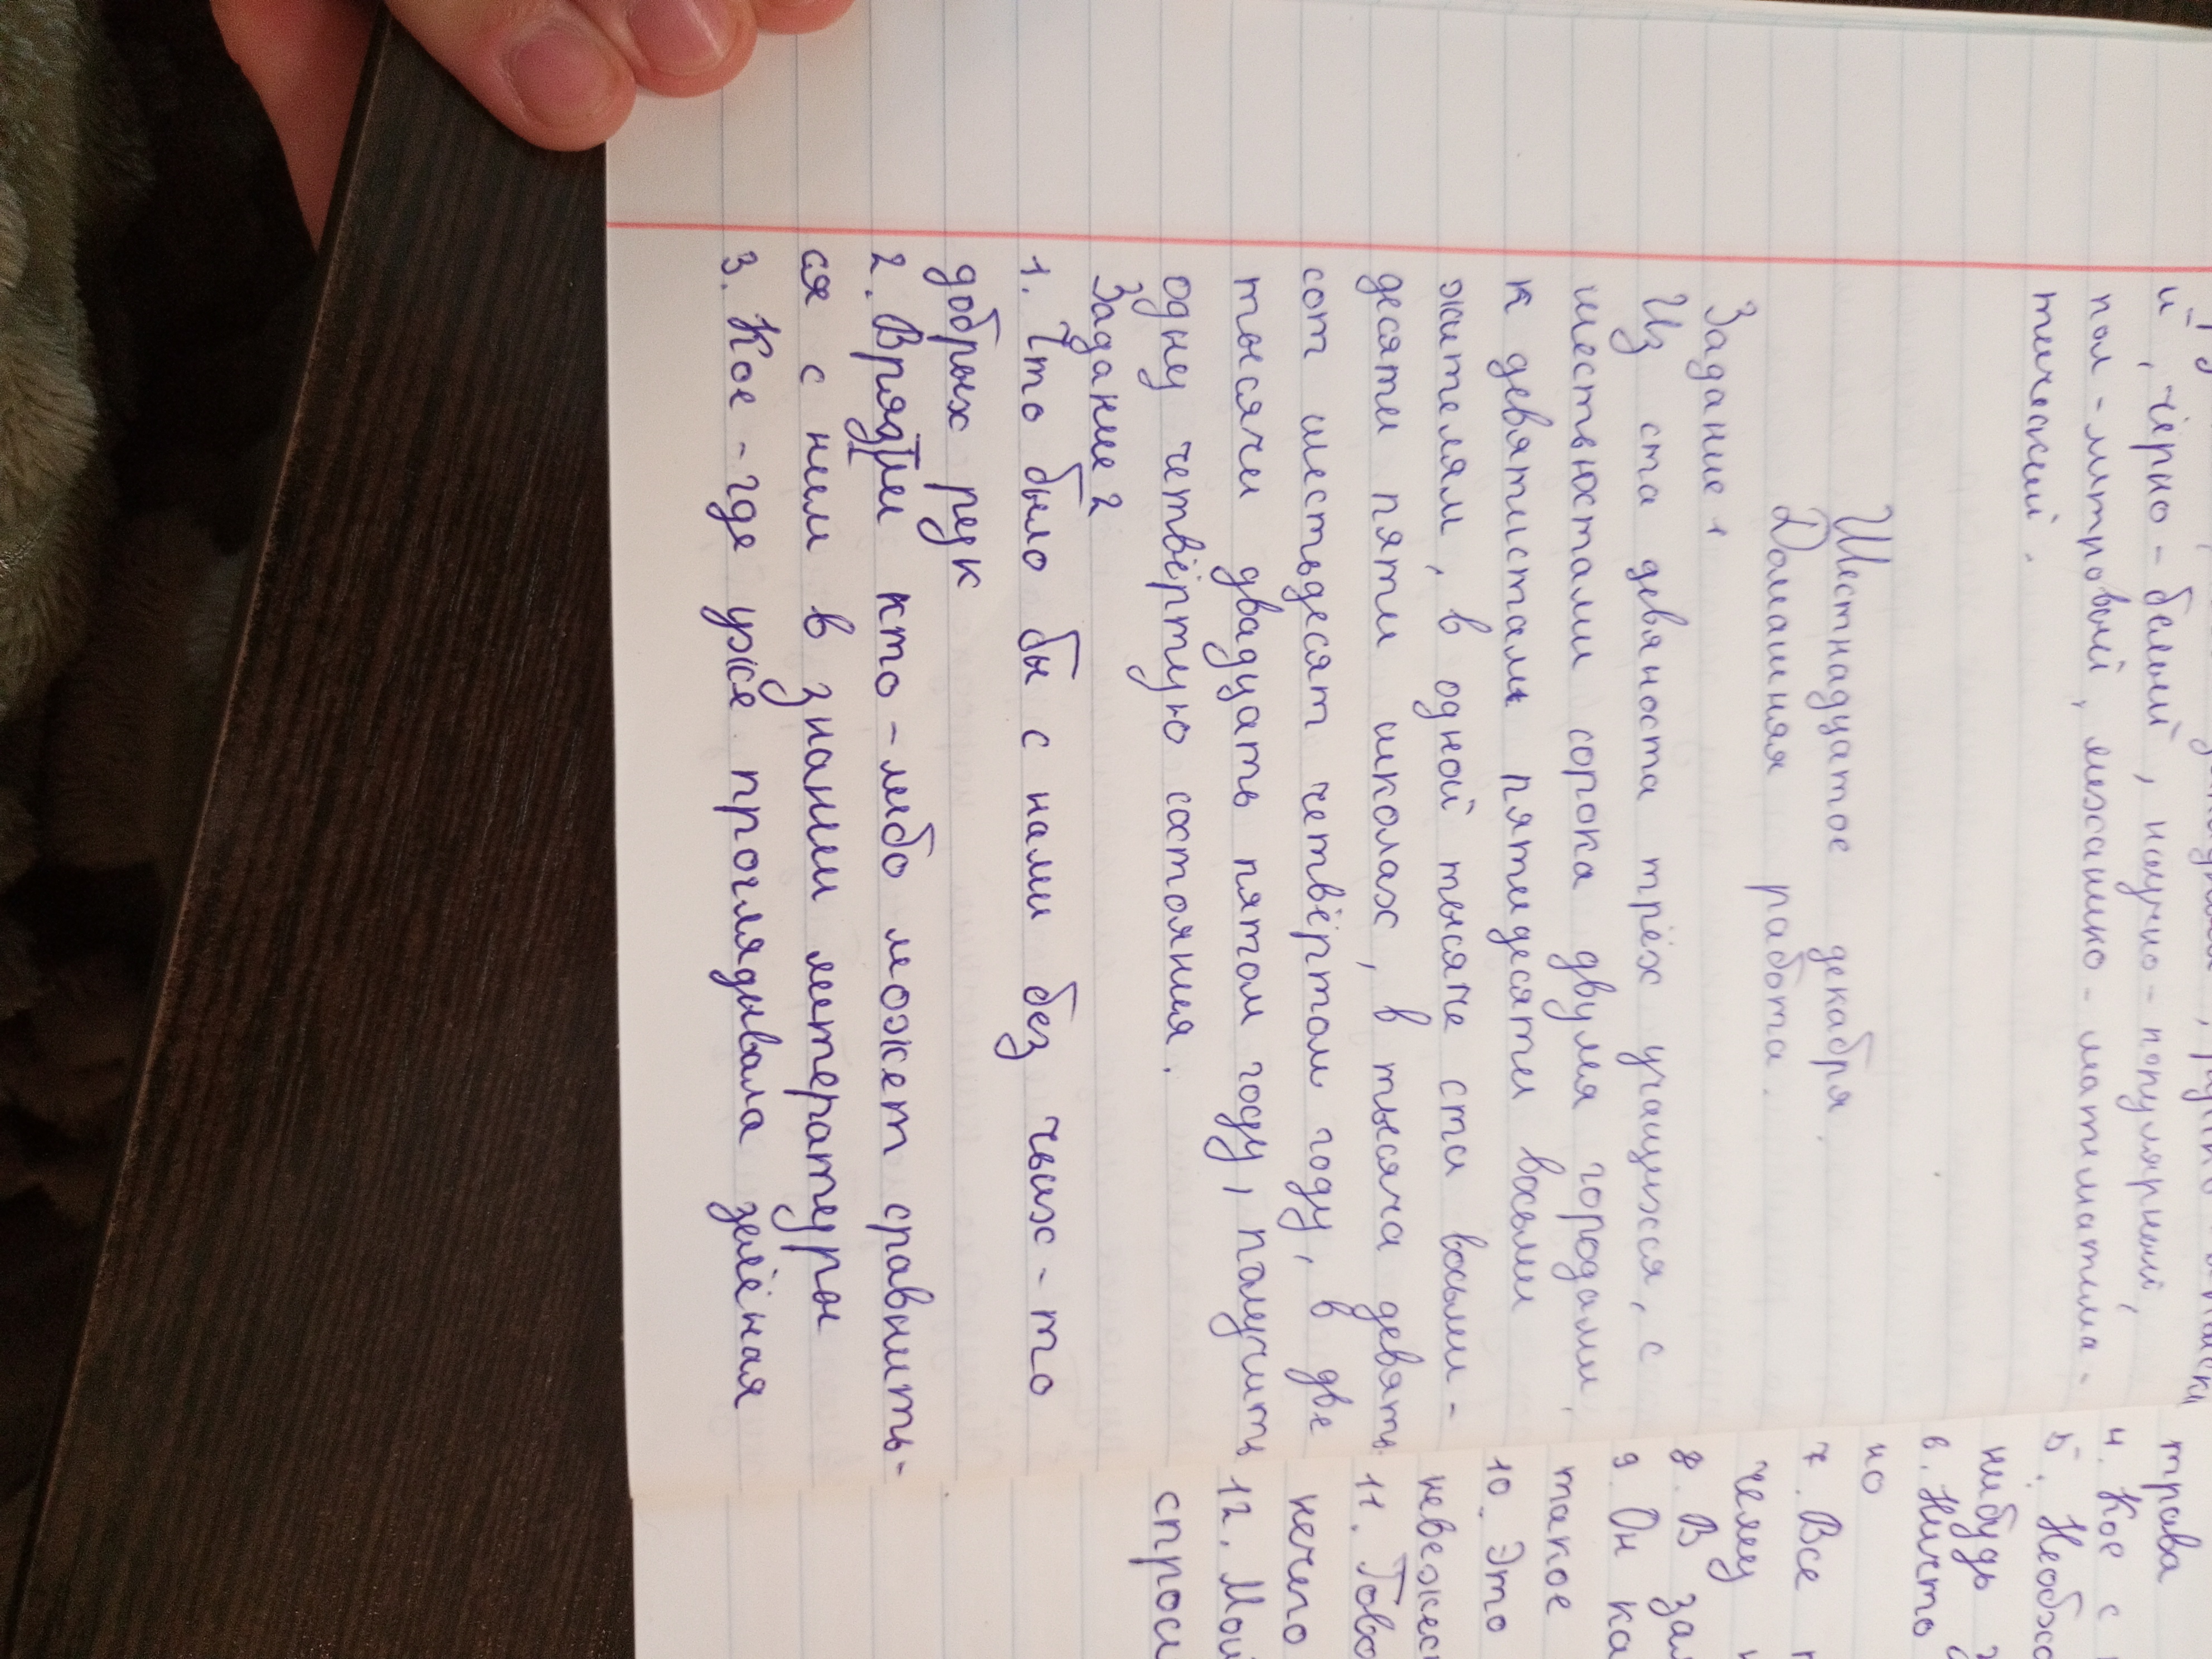 й, чёрно-белый, научно-популярный,
пол-литровый, механико-математиче-
тический.
Шестнадцатое декабря.
Домашняя работа.
Задание 1
Из ста девяноста трёх учащихся, с
шестьюстами сорока двумя городами,
к девятистам пятидесяти восьми
жителям, в одной тысяче ста восьми-
десяти пяти школах, в тысяча девять
сот шестьдесят четвёртом году, в две
тысячи двадцать пятом году, получить
одну четвёртую состояния.
Задание 2
1. Что было бы с нами без чьих-то
добрых рук
2. Врядли кто-либо может сравнить-
ся с ним в знании литературы
3. Кое-где уже проглядывала зелёная
трава
4. Кое с
5. Необхо
нибудь
6. Ничто
но
7. Все
чему
8. В зал
9. Он ка
такое
10. Это
невежес
11. Гово
нечего
12. Мои
спроси